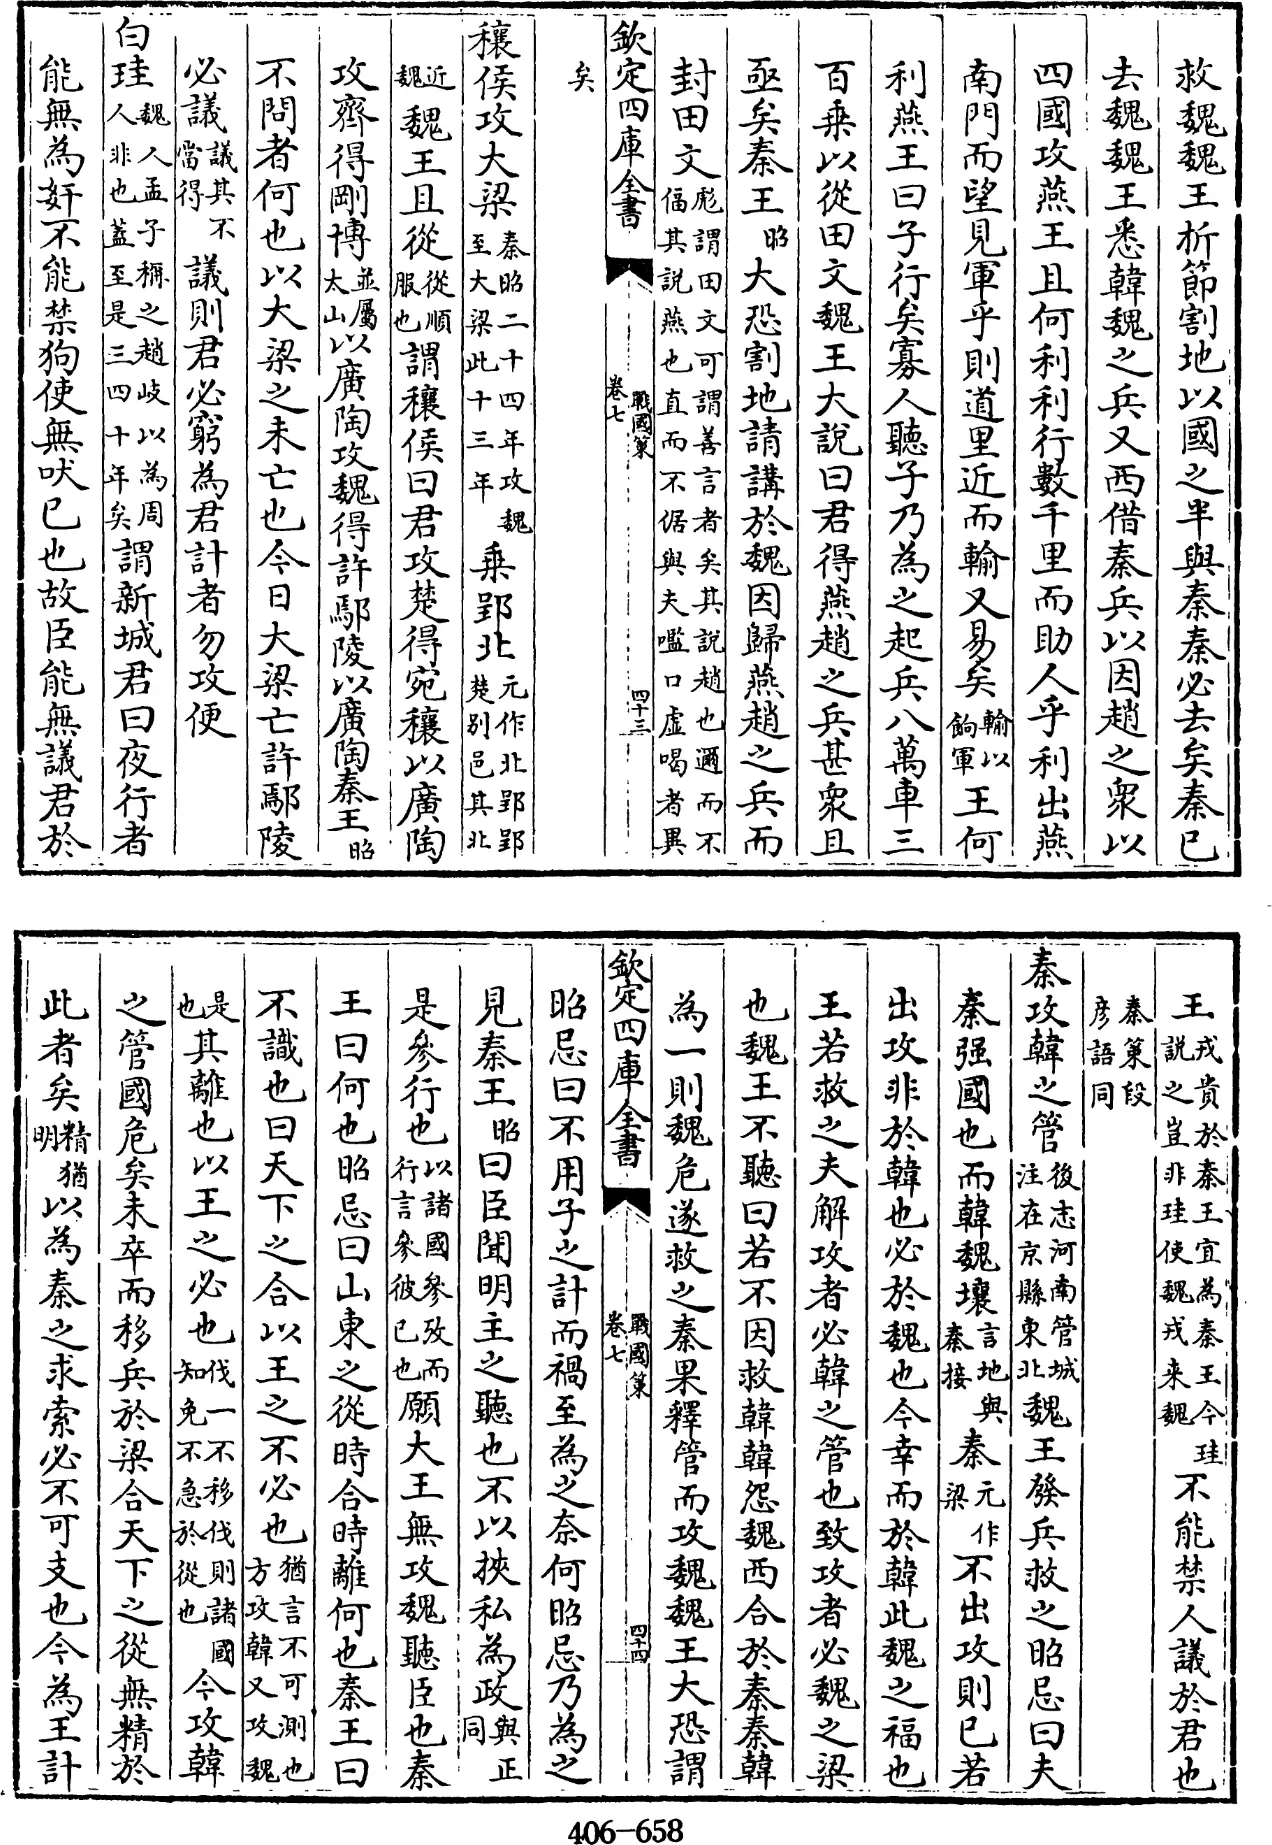 救魏魏王折節割地以國之半與秦秦必去矣秦已
去魏魏王悉韓魏之兵又西借秦兵以因趙之衆以
四國攻燕王且何利利行數千里而助人乎利出燕
南門而望見軍乎則道里近而輸又易矣輸以餉軍王何
利燕王曰子行矣寡人聽子乃為之起兵八萬車三
百乗以從田文魏王大說曰君得燕趙之兵甚衆且
亟矣秦王昭大恐割地請講於魏因歸燕趙之兵而
封田文彪謂田文可謂善言者矣其說趙也邇而不偪其說燕也直而不倨與夫嚂口虛喝者異
欽定四庫全書 戰國策 卷七 四十三
矣
穰侯攻大梁秦昭二十四年攻魏至大梁此十三年乗郢北元作北郢郢楚別邑其北
近魏魏王且從從順服也謂穰侯曰君攻楚得宛穰以廣陶
攻齊得剛博並屬太山以廣陶攻魏得許鄢陵以廣陶秦王昭
不問者何也以大梁之未亡也今日大梁亡許鄢陵
必議議其不當得議則君必窮為君計者勿攻便
白珪魏人孟子稱之趙岐以為周人非也蓋至是三四十年矣謂新城君曰夜行者
能無為奸不能禁狗使無吠已也故臣能無議君於
王戎貴於秦王宜為秦王今珪說之豈非珪使魏戎来魏不能禁人議於君也
秦策段彦語同
秦攻韓之管後志河南管城注在京縣東北魏王發兵救之昭忌曰夫
秦强國也而韓魏壤言地與秦接秦元作梁不出攻則已若
出攻非於韓也必於魏也今幸而於韓此魏之福也
王若救之夫解攻者必韓之管也致攻者必魏之梁
也魏王不聽曰若不因救韓韓怨魏西合於秦秦韓
為一則魏危遂救之秦果釋管而攻魏魏王大恐謂
欽定四庫全書 戰國策 卷七 四十四
昭忌曰不用子之計而禍至為之奈何昭忌乃為之
見秦王昭曰臣聞明主之聽也不以挾私為政與正同
是參行也以諸國參攷而行言參彼已也願大王無攻魏聽臣也秦
王曰何也昭忌曰山東之從時合時離何也秦王曰
不識也曰天下之合以王之不必也猶言不可測也方攻韓又攻魏
是也其離也以王之必也伐一不移伐則諸國知免不急於從也今攻韓
之管國危矣未卒而移兵於梁合天下之從無精於
此者矣精猶明以為秦之求索必不可支也今為王計
406-658